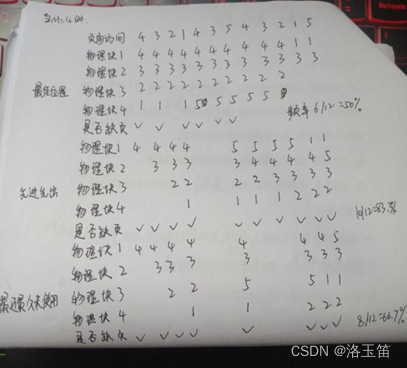 当M=4时.
页面访问 4 3 2 1 4 3 5 4 3 2 1 5
物理块1 4 4 4 4 4 4 4 4 4 4 1 1
物理块2 3 3 3 3 3 3 3 3 3 3 3
最佳置换 物理块3 2 2 2 2 2 2 2 2 2 2
物理块4 1 1 1 5 5 5 5 5
是否缺页 ✓ ✓ ✓ ✓ ✓ ✓ 频率 6/12=50%
物理块1 4 4 4 4 5 5 5 5 1 1
物理块2 3 3 3 3 4 4 4 4 5
先进先出 物理块3 2 2 2 2 3 3 3 3
物理块4 1 1 1 1 2 2 2
是否缺页 ✓ ✓ ✓ ✓ ✓ ✓ ✓ ✓ ✓ ✓ 10/12=83.3%
物理块1 4 4 4 4 4 4 4 5
物理块2 3 3 3 3 3 3 3
最近最久未使用 物理块3 2 2 5 5 1 1
物理块4 1 1 2 2 2
是否缺页 ✓ ✓ ✓ ✓ ✓ ✓ ✓ ✓ 8/12=66.7%
CSDN @洛玉笛